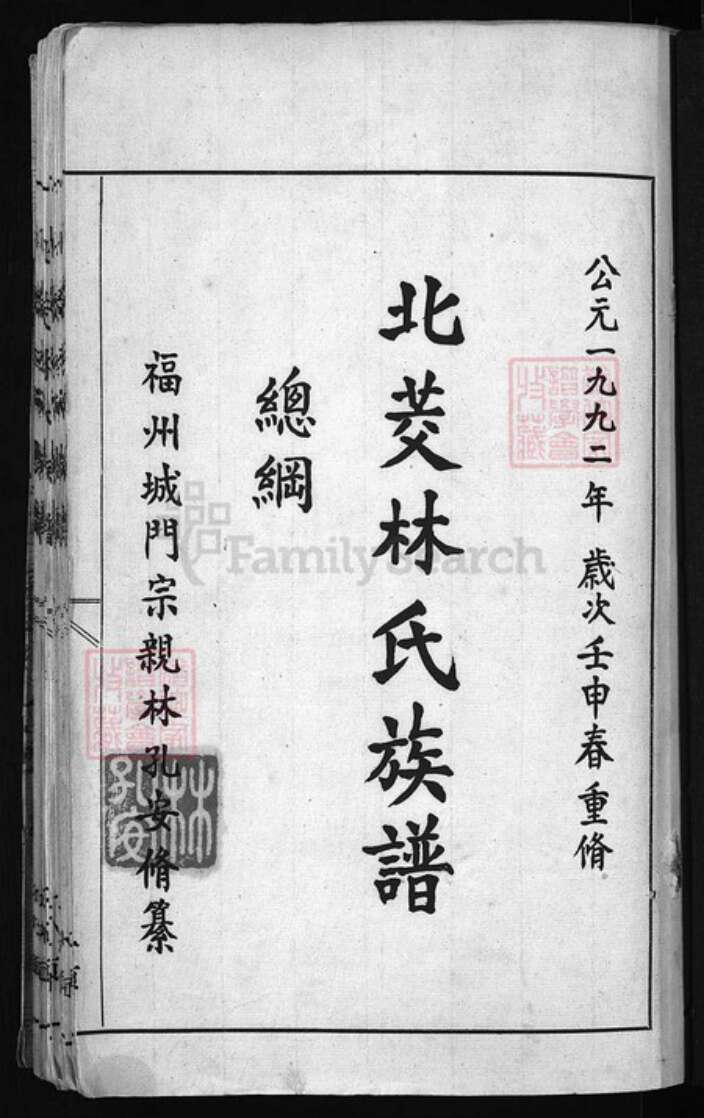 公元一九九二年 歲次壬申春重脩
北茭林氏族譜
總綱
福州城門宗親林孔安脩纂
林孔安
譜學會
收藏
FamilySearch